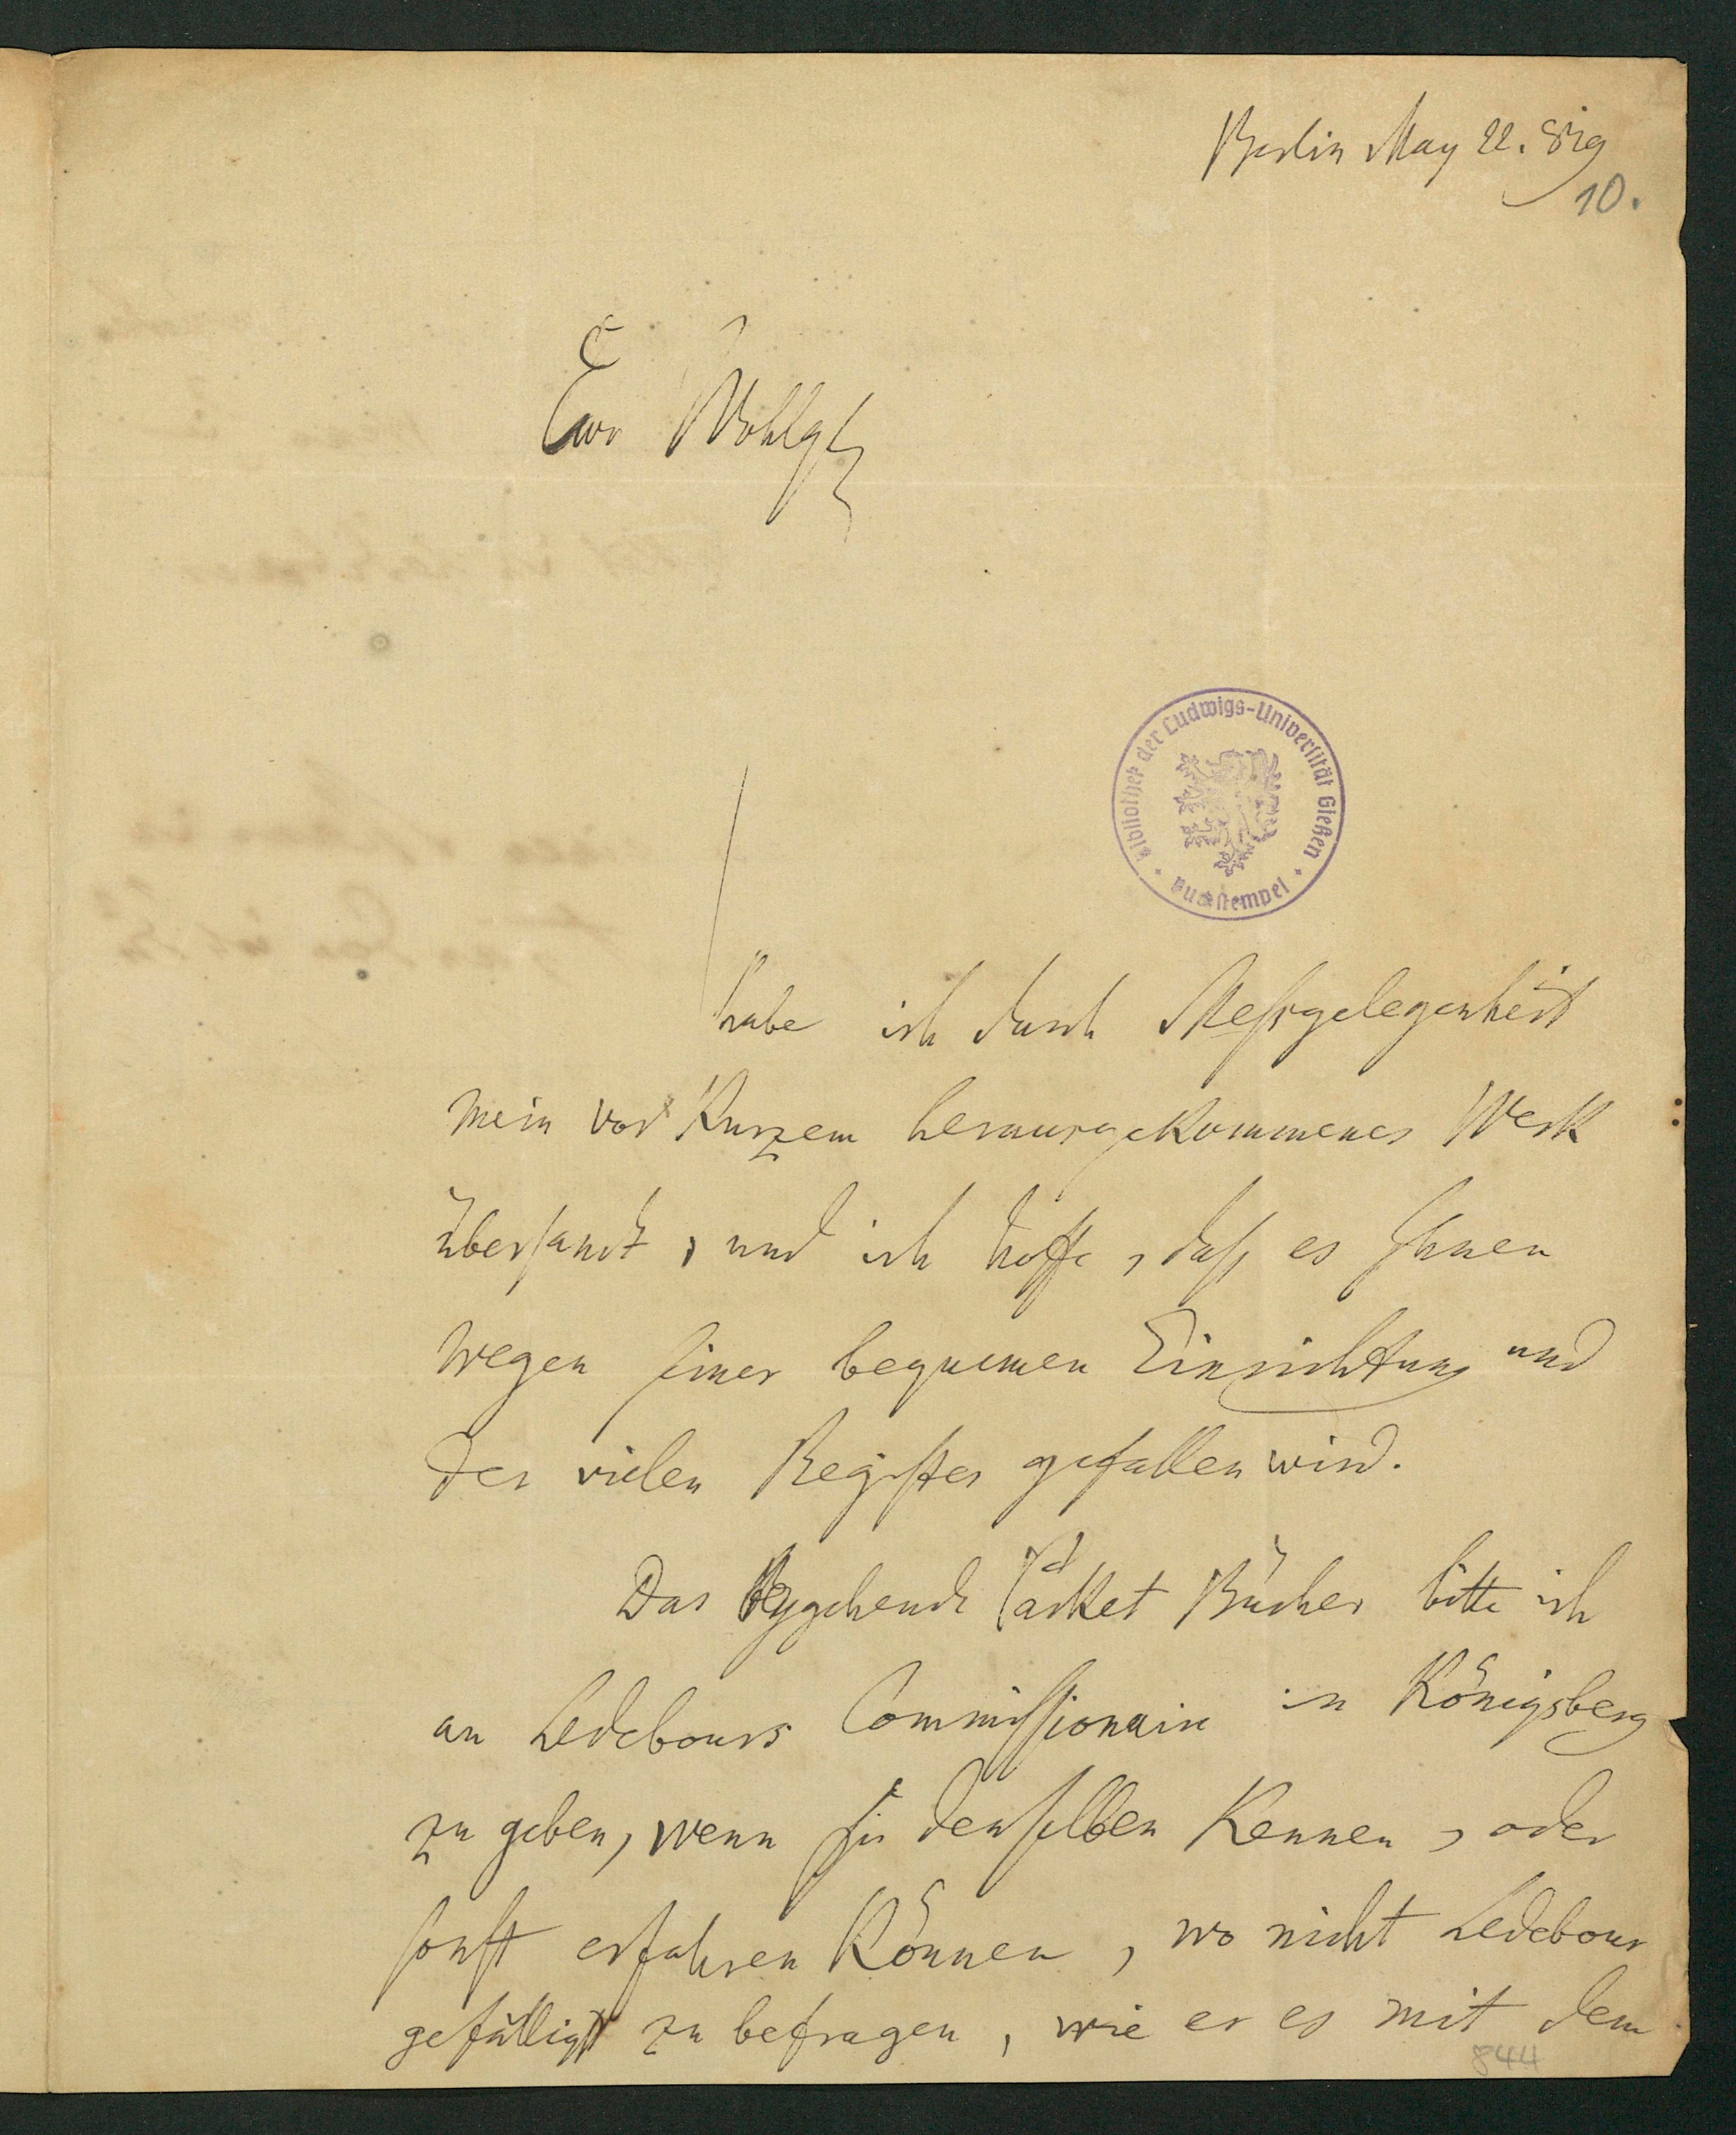 Berlin May 22. 819
10.
Ewr Wohlg
Bibliothek der Ludwigs-Universität Gießen
Buchstempel
habe ich durch Meßgelegenheit
mein vor Kurzem herausgekommenes Werk
übersandt, und ich hoffe, daß es Ihnen
wegen seiner bequemen Einrichtung und
der vielen Register gefallen wird.
Das beygehende Packet Bücher bitte ich
an Ledebours Commissionair in Königsberg
zu geben, wenn Sie denselben Kennen, oder
sonst erfahren Können, wo nicht Ledebour
gefälligst zu befragen, wie er es mit dem
844